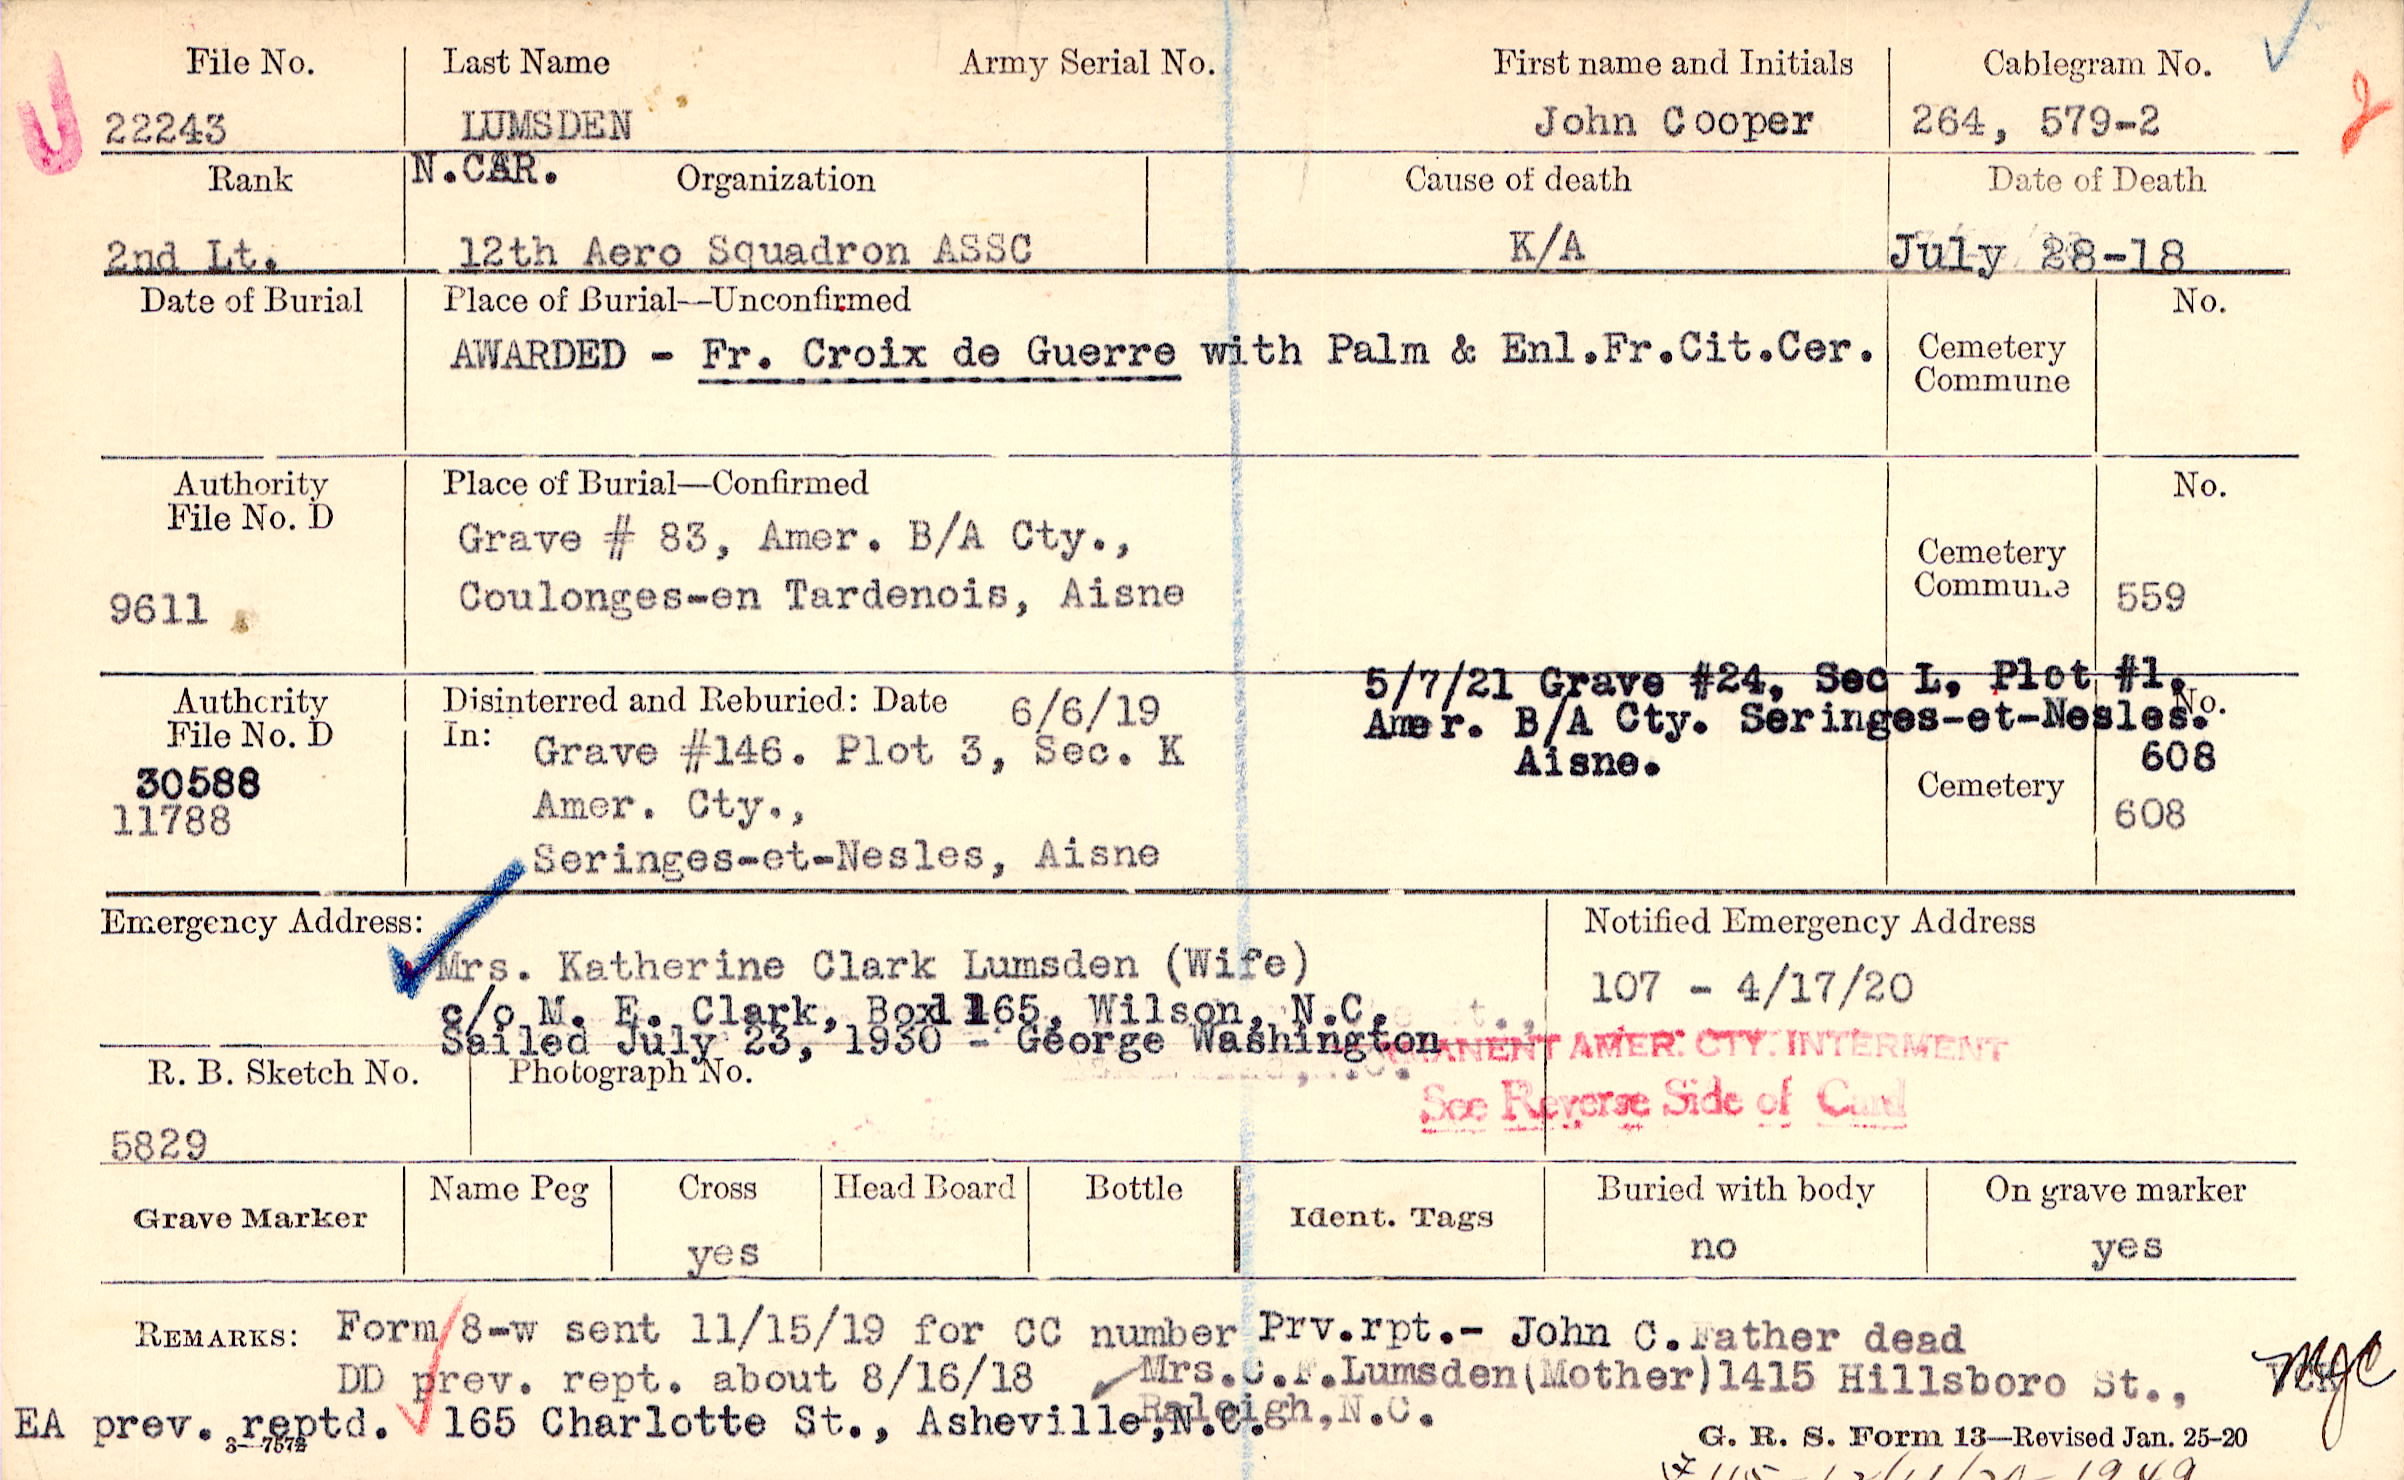 File No. Last Name Army Serial No. First name and Initials Cablegram No.
22243 LUMSDEN John Cooper 264, 579-2
2
Rank N.CAR. Organization Cause of death Date of Death
2nd Lt. 12th Aero Squadron ASSC K/A July 28-18
Date of Burial Place of Burial—Unconfirmed No.
AWARDED - Fr. Croix de Guerre with Palm & Enl.Fr.Cit.Cer. Cemetery
Commune
Authority Place of Burial—Confirmed No.
File No. D
Grave # 83, Amer. B/A Cty., Cemetery
9611 Coulonges-en Tardenois, Aisne Commune 559
5/7/21 Grave #24, Sec L, Plot #1,
Authority Disinterred and Reburied: Date 6/6/19 No.
Amer. B/A Cty. Seringes-et-Nesles.
File No. D In: Grave #146. Plot 3, Sec. K
Aisne. 608
30588
11788 Amer. Cty., Cemetery 608
Seringes-et-Nesles, Aisne
Emergency Address: Notified Emergency Address
Mrs. Katherine Clark Lumsden (Wife) 107 - 4/17/20
c/o M. E. Clark, Box 165, Wilson, N.C.
Sailed July 23, 1930 - George Washington
MANENT AMER. CTY. INTERMENT
R. B. Sketch No. Photograph No.
See Reverse Side of Card
5829
Grave Marker Name Peg Cross Head Board Bottle Ident. Tags Buried with body On grave marker
yes no yes
REMARKS: Form 8-w sent 11/15/19 for CC number Prv.rpt.- John C. Father dead
DD prev. rept. about 8/16/18 Mrs.C.F.Lumsden(Mother)1415 Hillsboro St.,
Raleigh,N.C.
EA prev. reptd. 165 Charlotte St., Asheville,N.C.
3—7572
G. R. S. Form 13—Revised Jan. 25-20